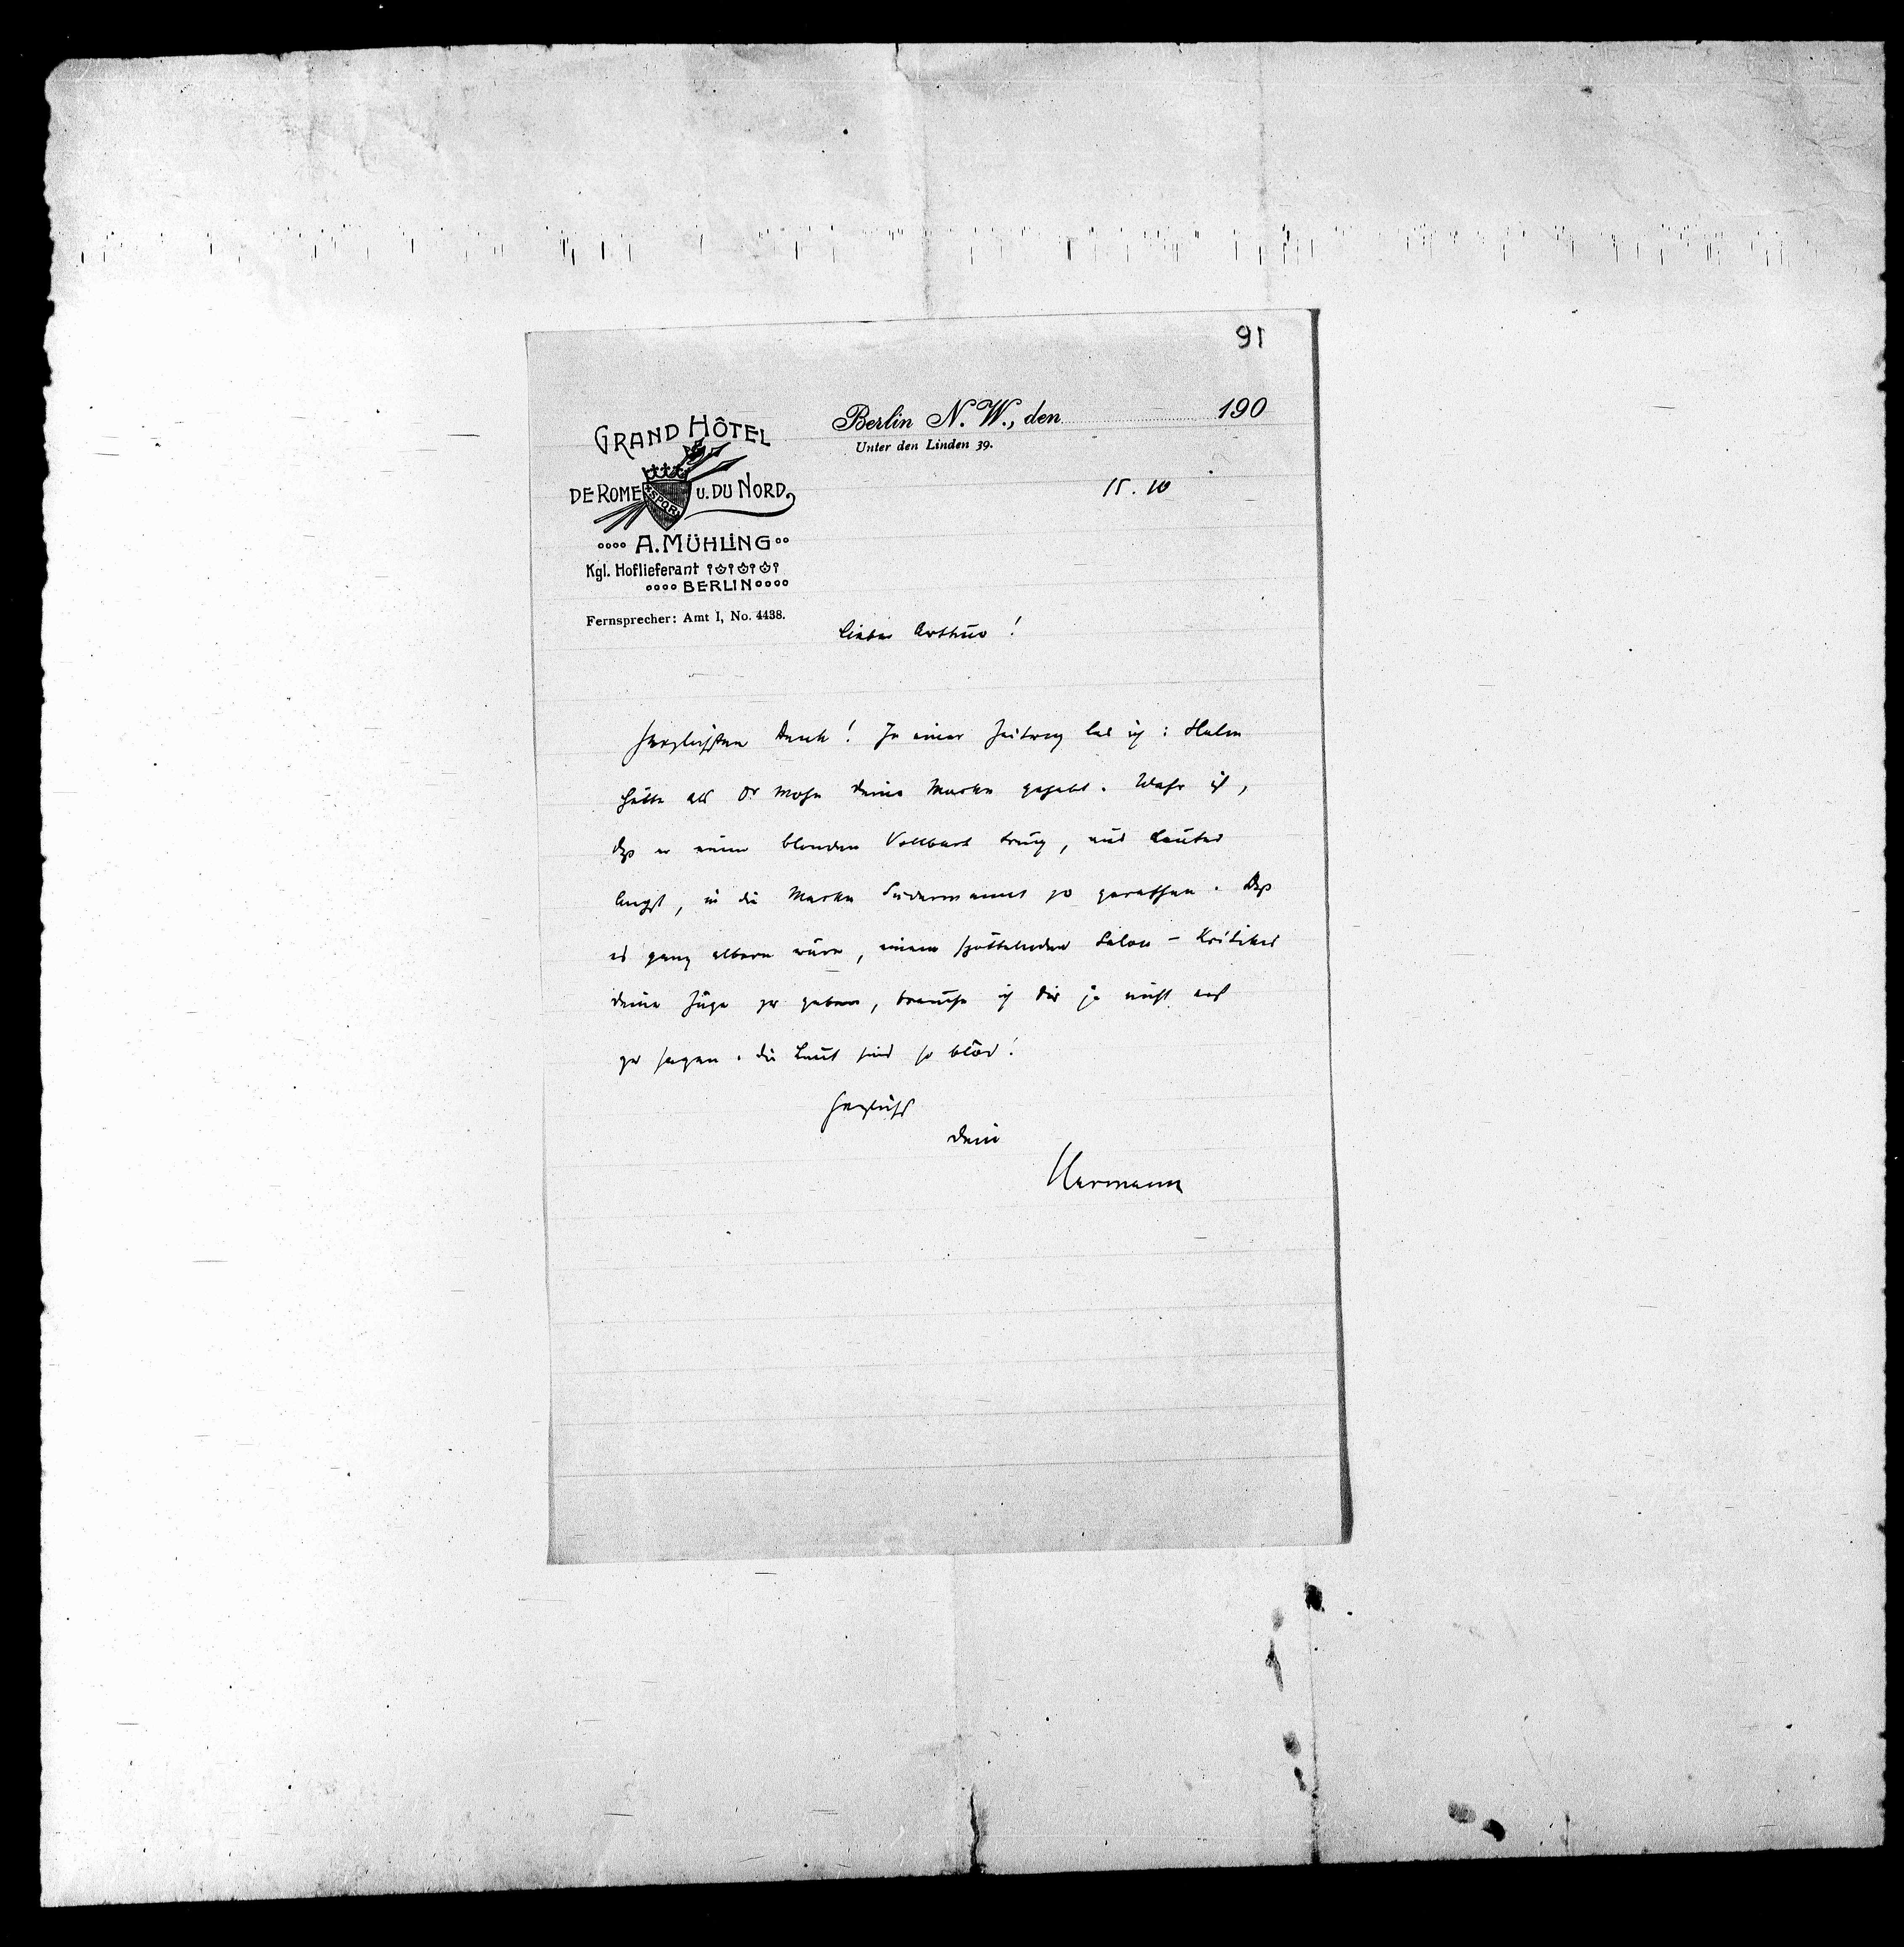 91
Berlin N. W., den 190
Unter den Linden 39.
GRAND HÔTEL
DE ROME SPQR U. DU NORD
A. MÜHLING
Kgl. Hoflieferant
BERLIN
Fernsprecher: Amt I, No. 4438.
15. 10
Lieber Arthur!
Herzlichsten Dank! In einer Zeitung las ich: Halm
hätte als Dr Mohn deine Maske gehabt. Wahr ist,
daß er einen blonden Vollbart trug, aus lauter
Angst, in die Maske Sudermanns zu gerathen. Daß
es ganz albern wäre, einem spöttelnden Salon-Kritiker
deine Züge zu geben, brauche ich dir ja nicht erst
zu sagen. Die Leut sind so blöd!
Herzlichst
Dein
Hermann